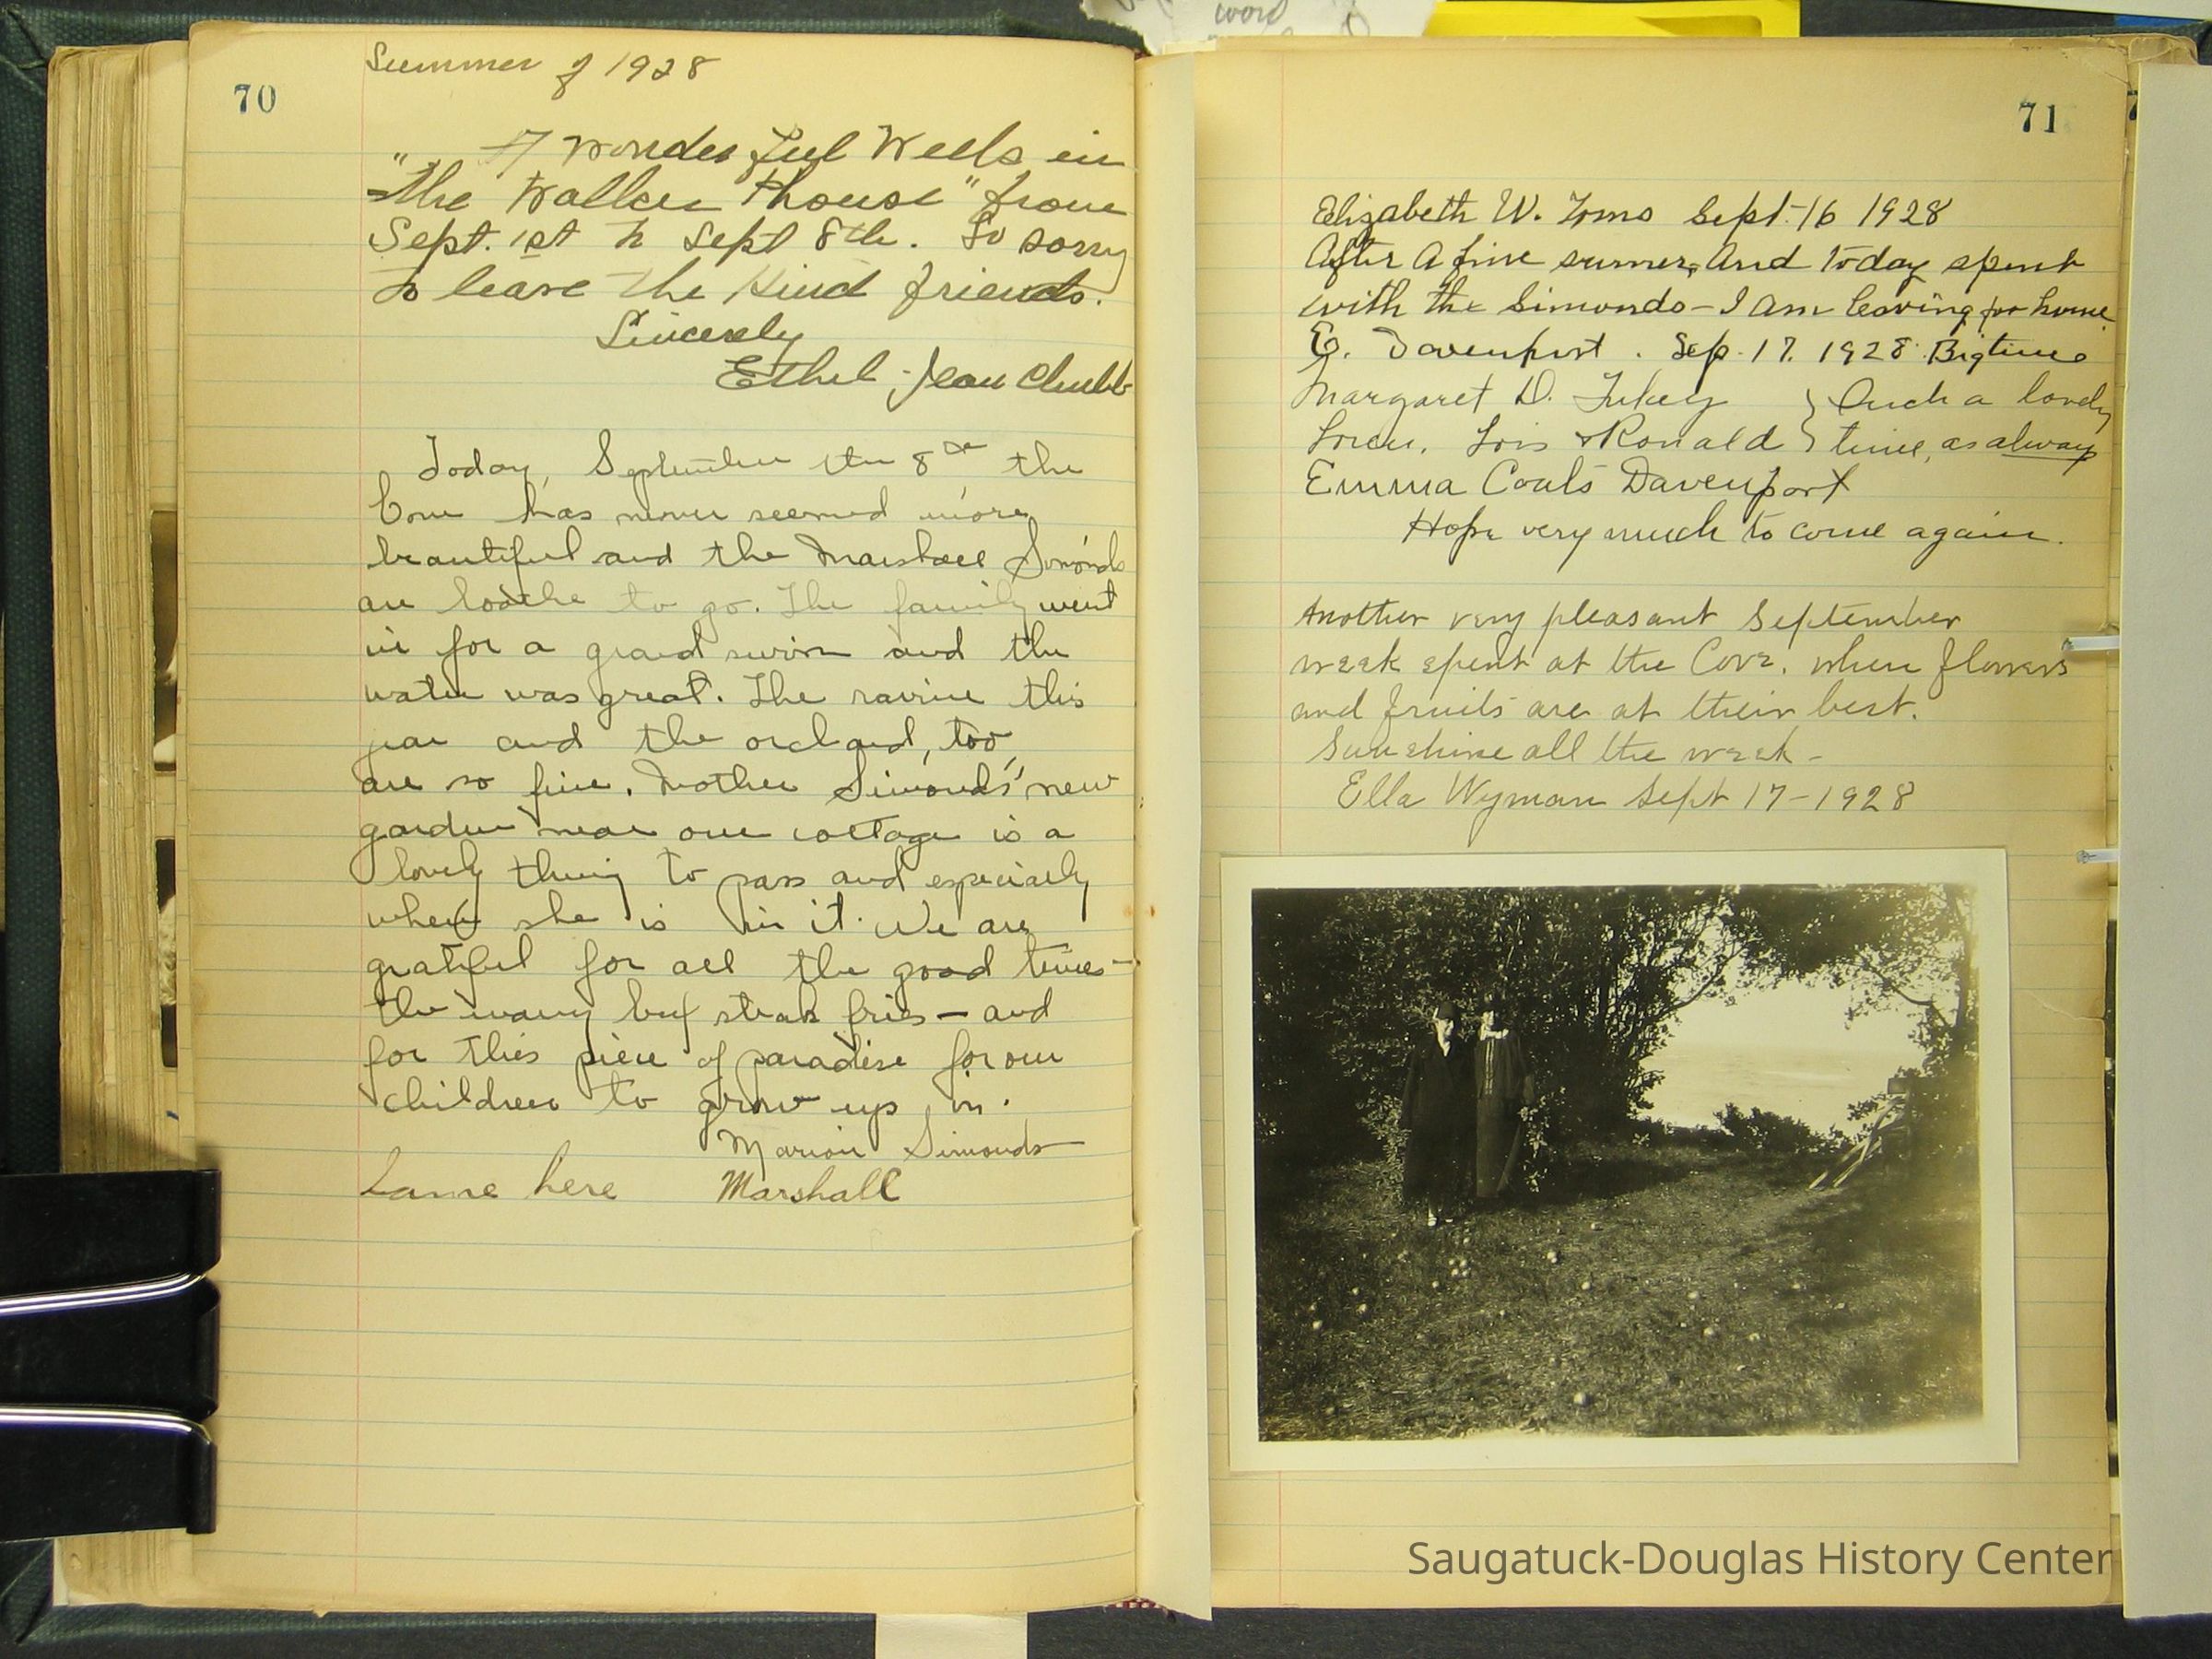 word
70
Summer of 1928
A wonderful Week in
"The Walker House" from
Sept. 1st to Sept 8th. So sorry
to leave the kind friends.
Sincerely
Ethel Jean Chubb
Today, September the 8th the
Cove has never seemed more
beautiful and the Marshall Simonds
are loathe to go. The family went
in for a grand swim and the
water was great. The ravine this
year and the orchard, too,
are so fine. Mother Simonds' new
garden near our cottage is a
lovely thing to pass and especially
when she is in it. We are
grateful for all the good times -
the many beef steak fries - and
for this piece of paradise for our
children to grow up in.
Marion Simonds
Same here Marshall
71
Elizabeth W. Sept. 16 1928
After a fine summer, and today spent
with the Simonds - I am leaving for home.
E. Davenport. Sep. 17. 1928. Big time
Margaret D. Tukey } Such a lovely
Loren, Lois & Ronald } time, as always
Emma Coats Davenport
Hope very much to come again.
Another very pleasant September
week spent at the Cove, when flowers
and fruits are at their best.
Sunshine all the week -
Ella Wyman Sept 17-1928
Saugatuck-Douglas History Center